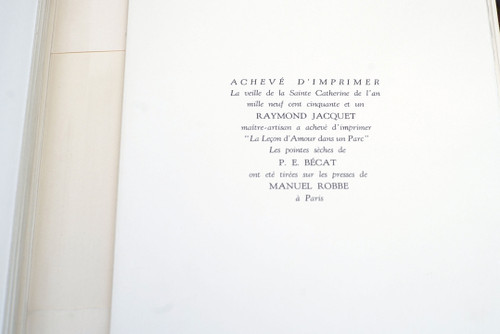 ACHEVÉ D'IMPRIMER
La veille de la Sainte Catherine de l'an
mille neuf cent cinquante et un
RAYMOND JACQUET
maître-artisan a achevé d'imprimer
"La Leçon d'Amour dans un Parc"
Les pointes sèches de
P. E. BÉCAT
ont eté tirées sur les presses de
MANUEL ROBBE
à Paris